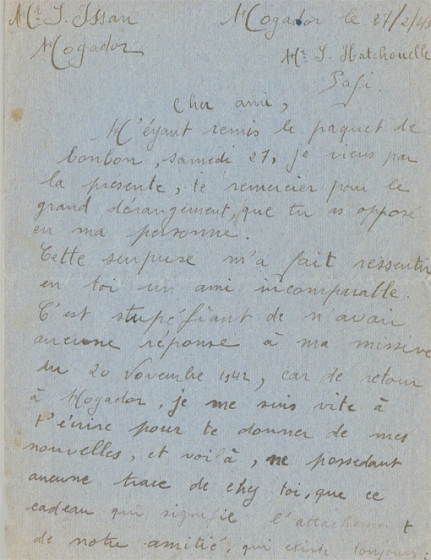 Mr. J. Issan Mogador le 27/2/43
Mogador Mr. J. Hatchouelle
Safi.
Cher ami,
M'éyant remis le paquet de
bonbon, samedi 27, je viens par
la presente, te remercier pour le
grand dérangement, que tu as opposé
en ma personne.
Cette surprise m'a fait ressentir
en toi un ami incomparable.
C'est stupéfiant de n'avoir
aucune réponse à ma missive
du 20 Novembre 1942, car de retour
à Mogador, je me suis vite à
t'écrire pour te donner de mes
nouvelles, et voilà, ne possedant
aucune trace de chez toi, que ce
cadeau qui signifie l'attachement
de notre amitié, qui existe toujours